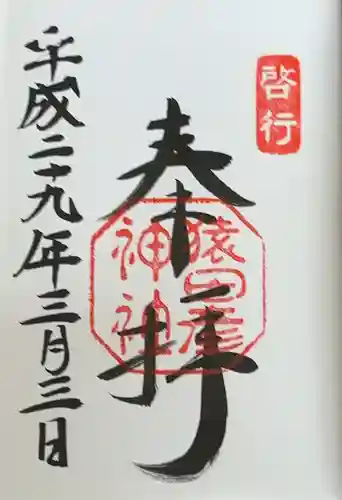 啓行
奉拝
猿田彦
神神
平成二十九年三月三日